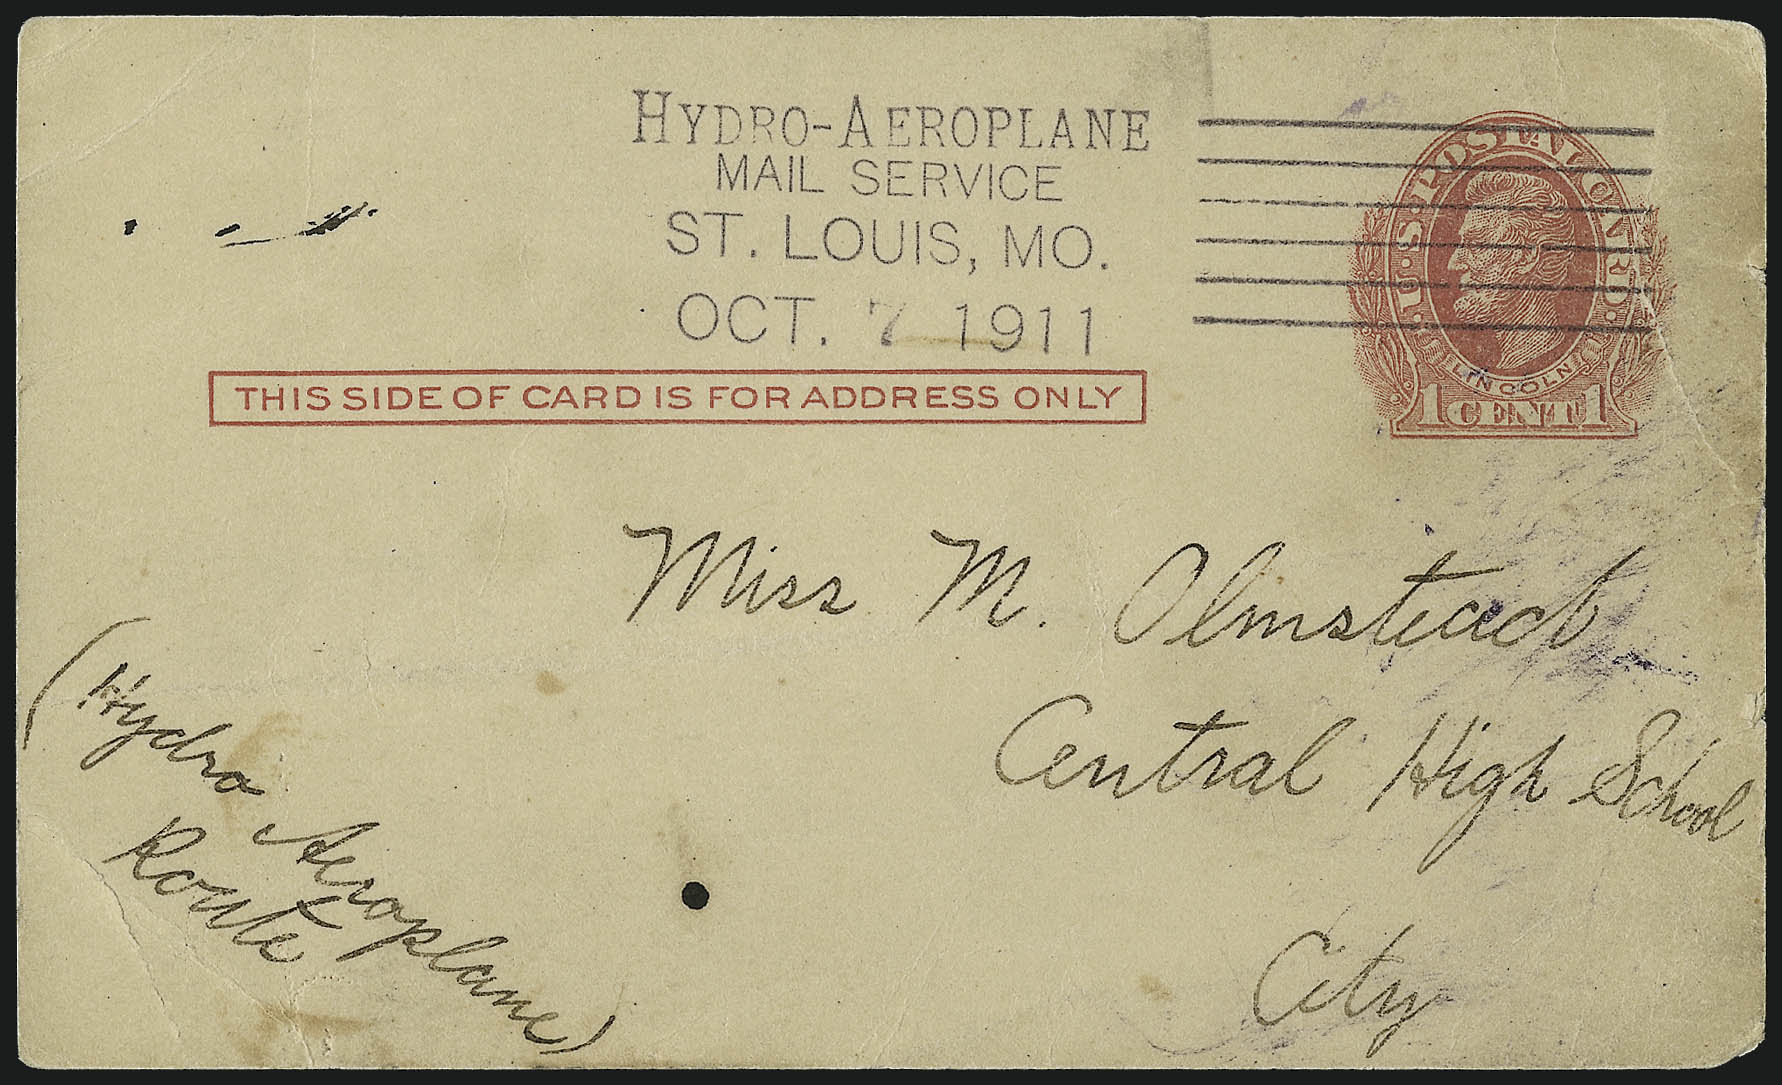 HYDRO-AEROPLANE
MAIL SERVICE
ST. LOUIS, MO.
OCT. 7 1911
U.S. POSTAL CARD
LINCOLN
1 CENT 1
THIS SIDE OF CARD IS FOR ADDRESS ONLY
Miss M. Olmstead
Central High School
City
(Hydro Aeroplane
Route)